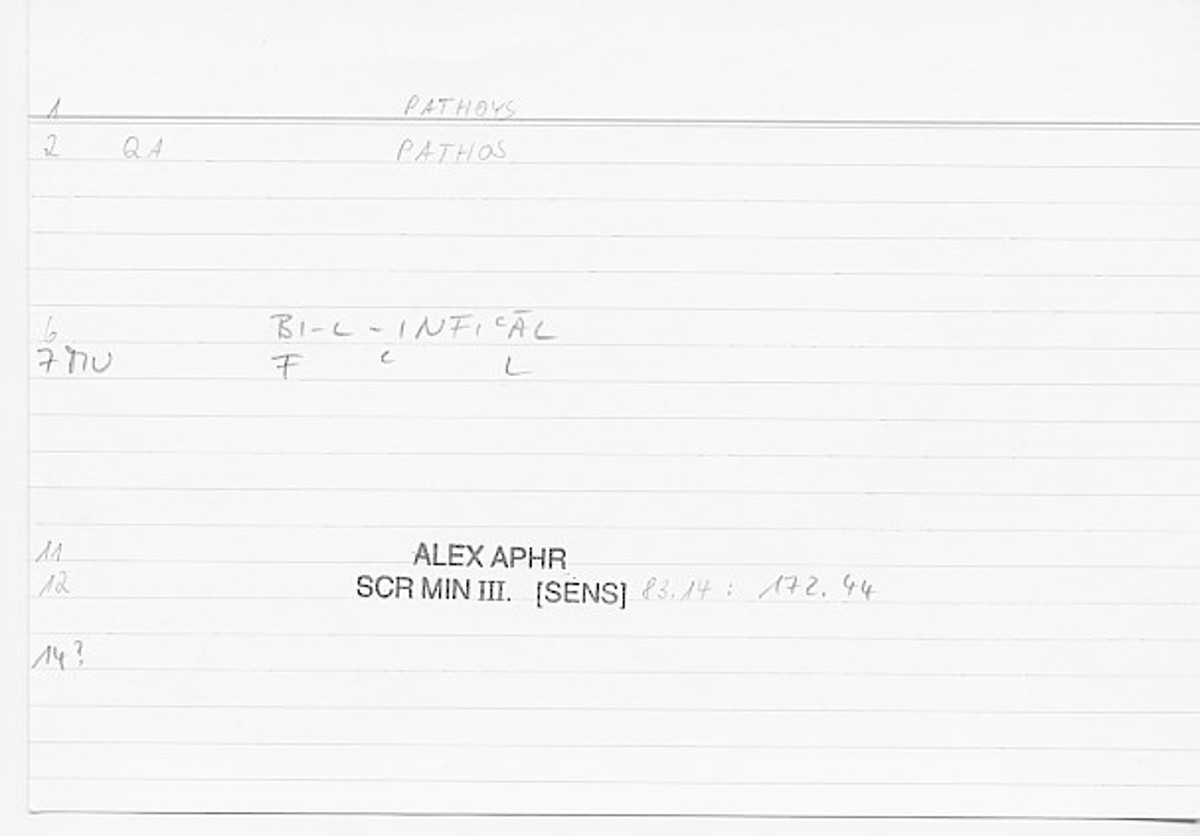 1 PATHOYS
2 QA PATHOS
6 BI-L-INFICĀL
7 MU F C L
11 ALEX APHR
12 SCR MIN III. [SENS] 83.14 : 172.44
14?